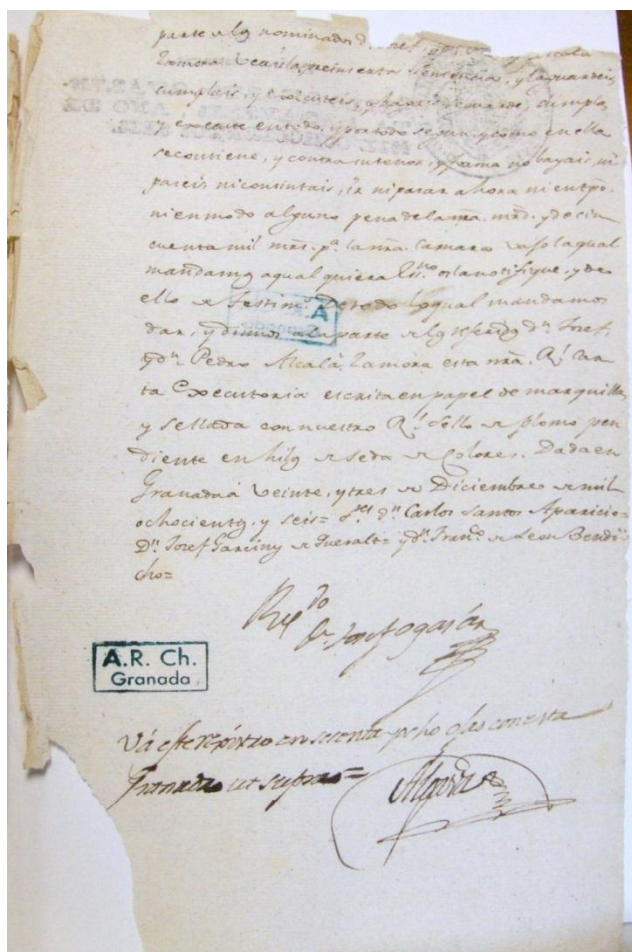 parte a los nominados d
Zamora veais la precimenta Sentencia, y la guardeis,
cumplais, y executeis, y hagais se guarde, cumpla,
y execute en todo, y por todo segun, y como en ella
se contiene, y contra su tenor, y forma no bayais, ni
paseis, ni consintais, ir ni pasar ahora ni en tpo.
ni en modo alguno pena de la nra. mrd. y de cin
cuenta mil mrs. pa. la nra. Camara vaso la qual
mandamos a qual quiera Essno. os la notifique, y de
ello de testimo. De todo lo qual mandamos
dar, y dimos a la parte de los referidos dn. Josef,
y dn. Pedro Alcalá Zamora esta nra. Rl. Car
ta Executoria escrita en papel de marquilla,
y Sellada con nuestro Rl. Sello de plomo pen
diente en hilos de seda de Colores. Dada en
Granada á veinte, y tres de Diciembre de mil
ochocientos, y seis= Sres. dn. Carlos Santos Aparicio=
Dn. Josef Garciny de Queralt= y dn. Franco. de Leon Bendi
cho=
Rexdo
A.R. Ch.
Granada
Vá este repartio en sesenta y ocho ojas con esta
Granada ut supra=